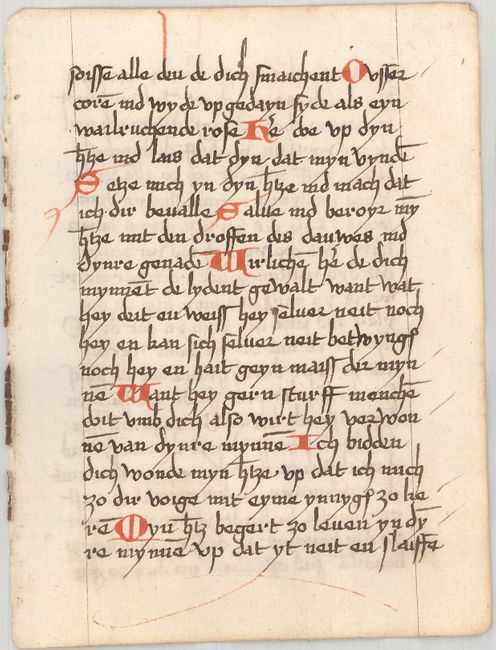 soisse alle den de dich smaichent Ovsser
corē ind wyde vp gedayn syde als eyn
wailruchende rose Hē doe vp dyn
htze ind lais dat dyn dat myn vyndē
Setze mich yn dyn htze ind mach dat
ich dir beualle Salue ind beroyr mȳ
htze mit den droffen des dauwes ind
dynre genadē Wirlichē hē de dich
mynnēt de lydent gewalt want wat
hey deit en weiss hey seluer neit noch
hey en kan sich seluer neit betwyngē
noch hey en hait geyn maiss der myn
nē Want hey gern sturff menchē
doit vmb dich also wirt hey verwon
nē van dynre mynnē Ich bidden
dich wonde myn htze vp dat ich mich
zo dir voige mit eyme ynnygē zo ke
rē Myn htz begert zo leuen yn dȳ
re mynnē vp dat yt neit en slaiffe